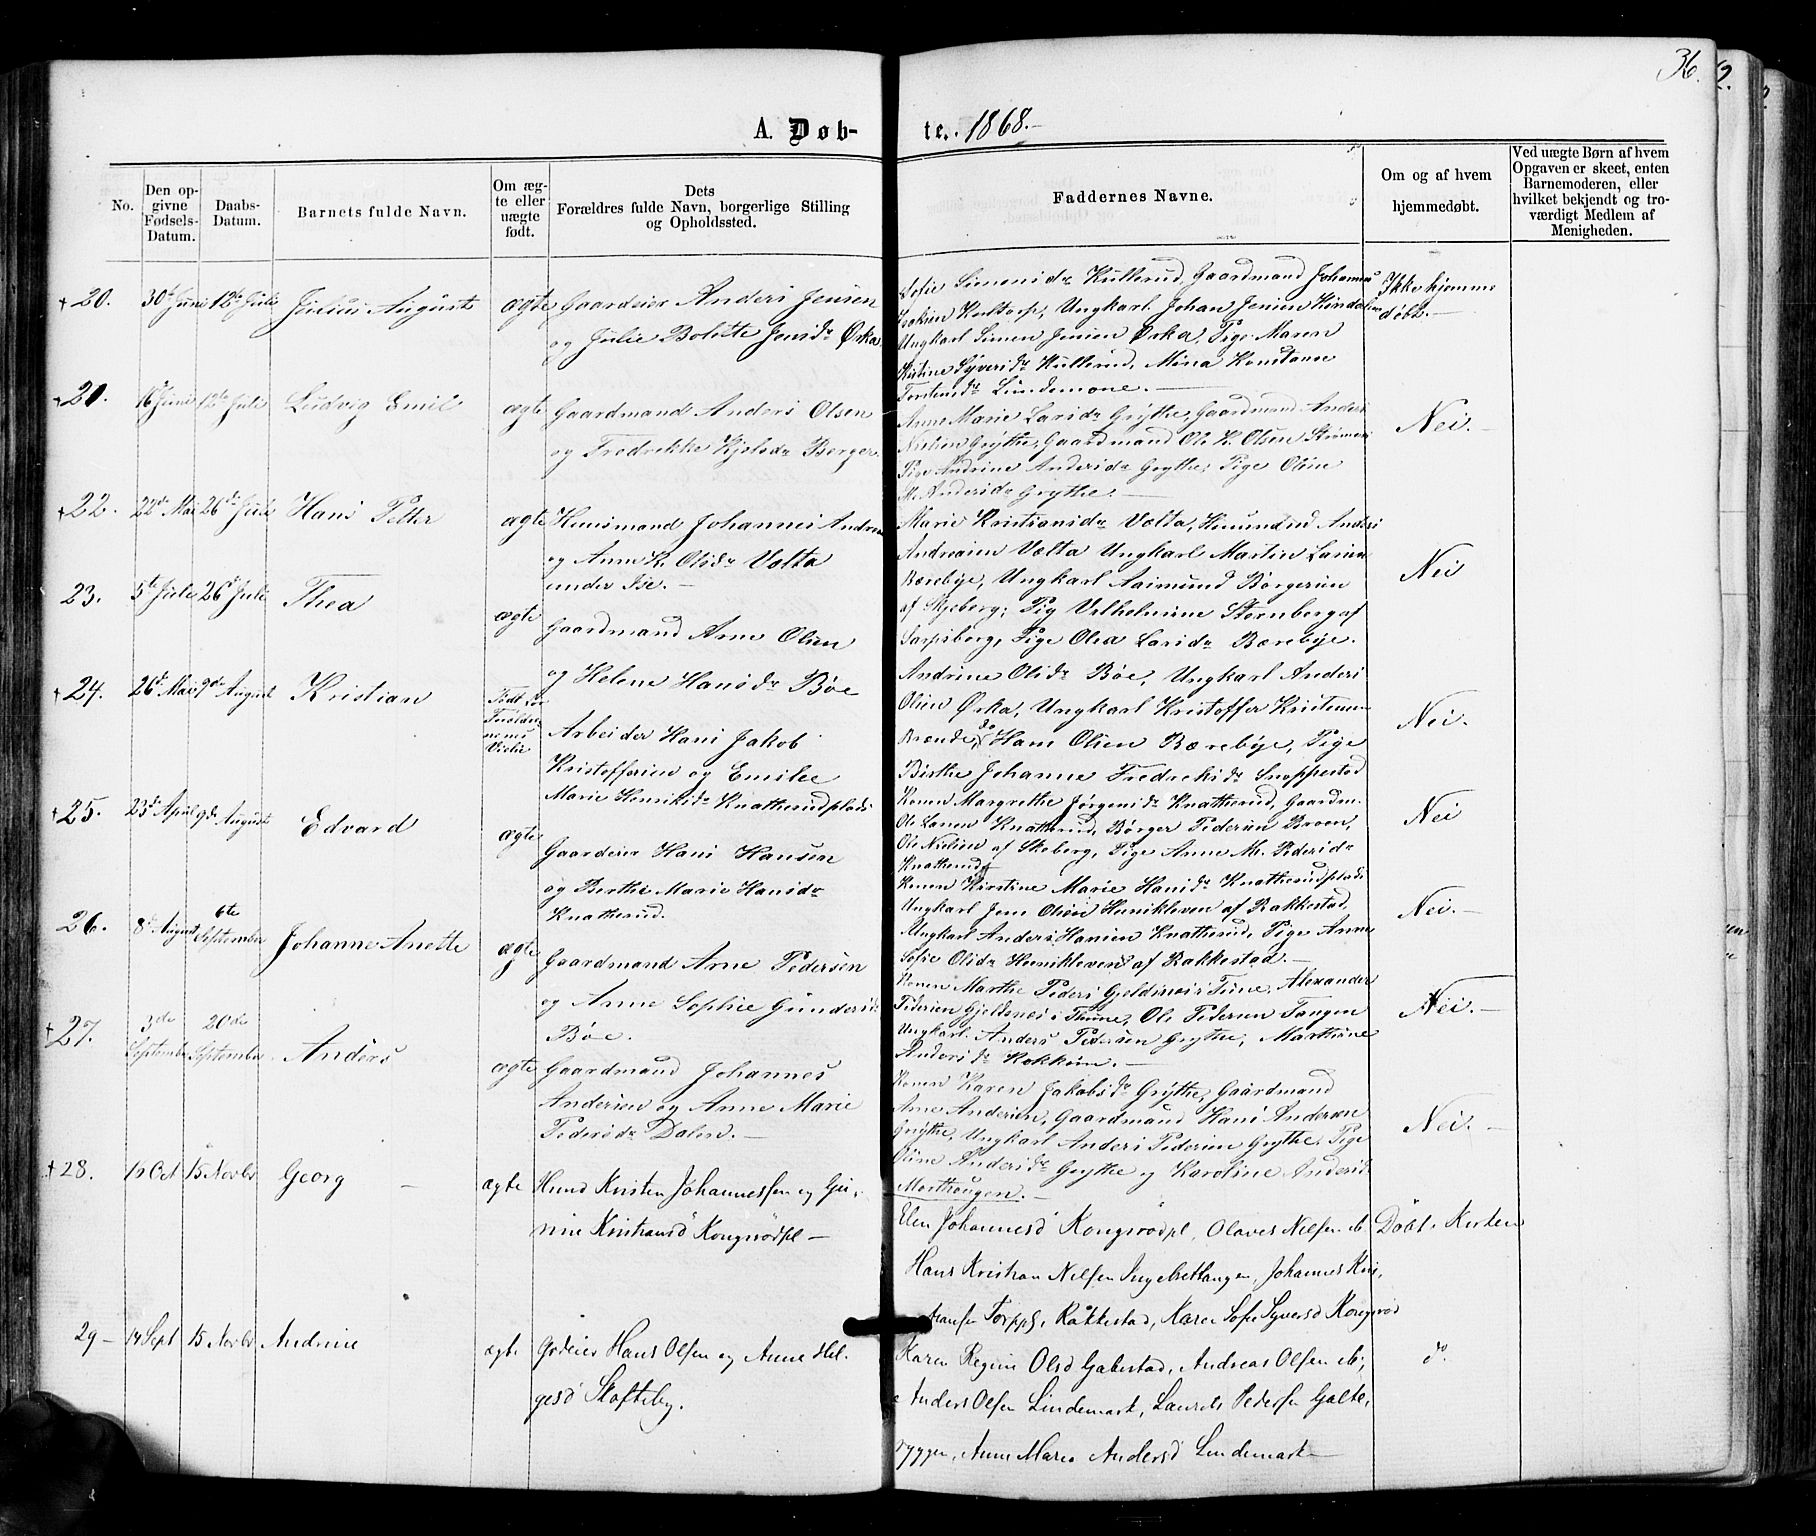 36.
A. Døb- te. 1868.-
No.
Den opgivne Fødsels-Datum.
Daabs-Datum.
Barnets fulde Navn.
Om ægte eller uægte født.
Dets Forældres fulde Navn, borgerlige Stilling og Opholdssted.
Faddernes Navne.
Om og af hvem hjemmedøbt.
Ved uægte Børn af hvem Opgaven er skeet, enten Barnemoderen, eller hvilket bekjendt og troværdigt Medlem af Menigheden.
+20. 30te Juni 12te Juli Julius August ægte Gaardeier Anders Jensen
og Julie Bolette Jensdr Ørka.
Sofie Simensdr Kullerud, Gaardmand Johannes
Ungkarl Johan Jensen
Ungkarl Simen Jensen Ørka, Pige Maren
Kirstine Syversdr Kullerud, Mina Konstanse
Torstensdr Lindemone.-
Ikke hjemme
døbt.-
+21. 16de Juni 12te Juli Ludvig Emil ægte Gaardmand Anders Olsen
og Fredrikke Kjelsdr Berger.
Anne Marie Larsdr Grythe, Gaardmand Anders
Nielsen Grythe, Gaardmand Ole K. Olsen
Pige Andrine Andersdr Grythe, Pige Oline
M. Andersdr Grythe.-
Nei.-
+22. 22de Mai 26de Juli Hans Petter ægte Huusmand Johannes Andreas
og Anne K. Olsdr Vælta
under Ise.-
Marie Kristiansdr Vælta, Huusmand Anders
Andreasen Vælta Ungkarl Martin Larsen
Bærebye, Ungkarl Aasmund Børgersen
af Skjeberg, Pig Vilhelmine Stornberg af
Sarpsborg, Pige Olea Larsdr Bærebye.
Nei
23. 5te Juli 26de Juli Thea ægte Gaardmand Arne Olsen
og Helene Hansdr Bøe
Andrine Olsdr Bøe, Ungkarl Anders
Olsen Ørka, Ungkarl Kristoffer Kristensen
Brænde, do Hans Olsen Bærebye, Pige
Birthe Johanne Fredriksdr Snoppestad
Nei.
+24. 26de Mai 9de August Kristian Født før
Forældrenes
Vielse
Arbeider Hans Jakob
Kristoffersen og Emilie
Marie Henriksdr Knatterudplads
Konen Margrethe Jørgensdr Knatterud, Gaardm.
Ole Larsen Knatterud, Børger Pedersen Broen,
Ole Nielsen af Skeberg, Pige Anne M. Pedersdr
Knatterud
Nei
+25. 23de April 9de August Edvard ægte Gaardeier Hans Hansen
og Berthe Marie Hansdr
Knatterud.
Konen Kirstine Marie Hansdr Knatterudplads
Ungkarl Jens Olsen Henikleven af Rakkestad,
Ungkarl Anders Hansen Knatterud, Pige Anne
Sofie Olsdr Henikleven af Rakkestad.-
Nei.-
26. 8de August 6te September Johanne Anette ægte Gaardmand Arne Pedersen
og Anne Sophie Gundersdr
Bøe.
Konen Marthe Peders Gjeldsnes i Tune, Alexander
Pedersen Gjeldsnes i Thune, Ole Pedersen Tangen
Ungkarl Anders Pedersen Grythe, Marthine
Andersdr Kokkim.-
Nei.-
+27. 3de September 20de September Anders ægte Gaardmand Johannes
Andersen og Anne Marie
Pedersdr Dalen.-
Konen Karen Jakobsdr Grythe, Gaardmand
Arne Andersen, Gaardmand Hans Andersen
Grythe, Ungkarl Anders Pedersen Grythe, Pige
Oline Andersdr Grythe og Karoline Andersdr
Morthougen.-
Nei.-
+28. 15 Oct 15 Novbr Georg - ægte Husmd Kristen Johannessen og Gu-
nine Kristiansd Kongsrødpl-
Elen Johannesd Kongsrødpl, Olaves Nilsen ib
Hans Kristian Nilsen Ingelsrettangen, Johannes Kris-
tiansen Torppl, Rakkestad, Karen Sofie Syversd Kongsrød
Døbt i Kirken
29- 14 Sept 15 Novbr Andrine ægte Grdeier Hans Olsen og Anne Hel-
gesd Skofteby.
Karen Regine Olsd Gabestad, Andreas Olsen ib;
Anders Olsen Lindemark, Laurits Pedersen Galte,
ryggen, Anne Maria Andersd Lindemark-
do